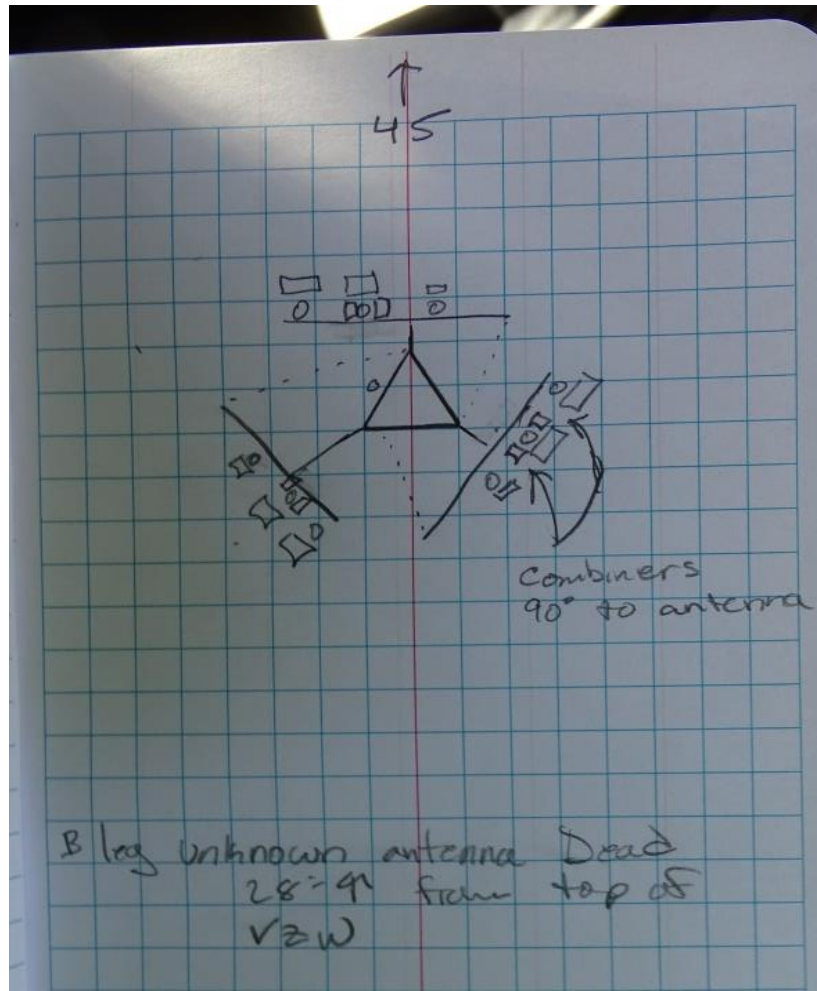 45
Combiners
90° to antenna
B leg unknown antenna Dead
from top of
VZW